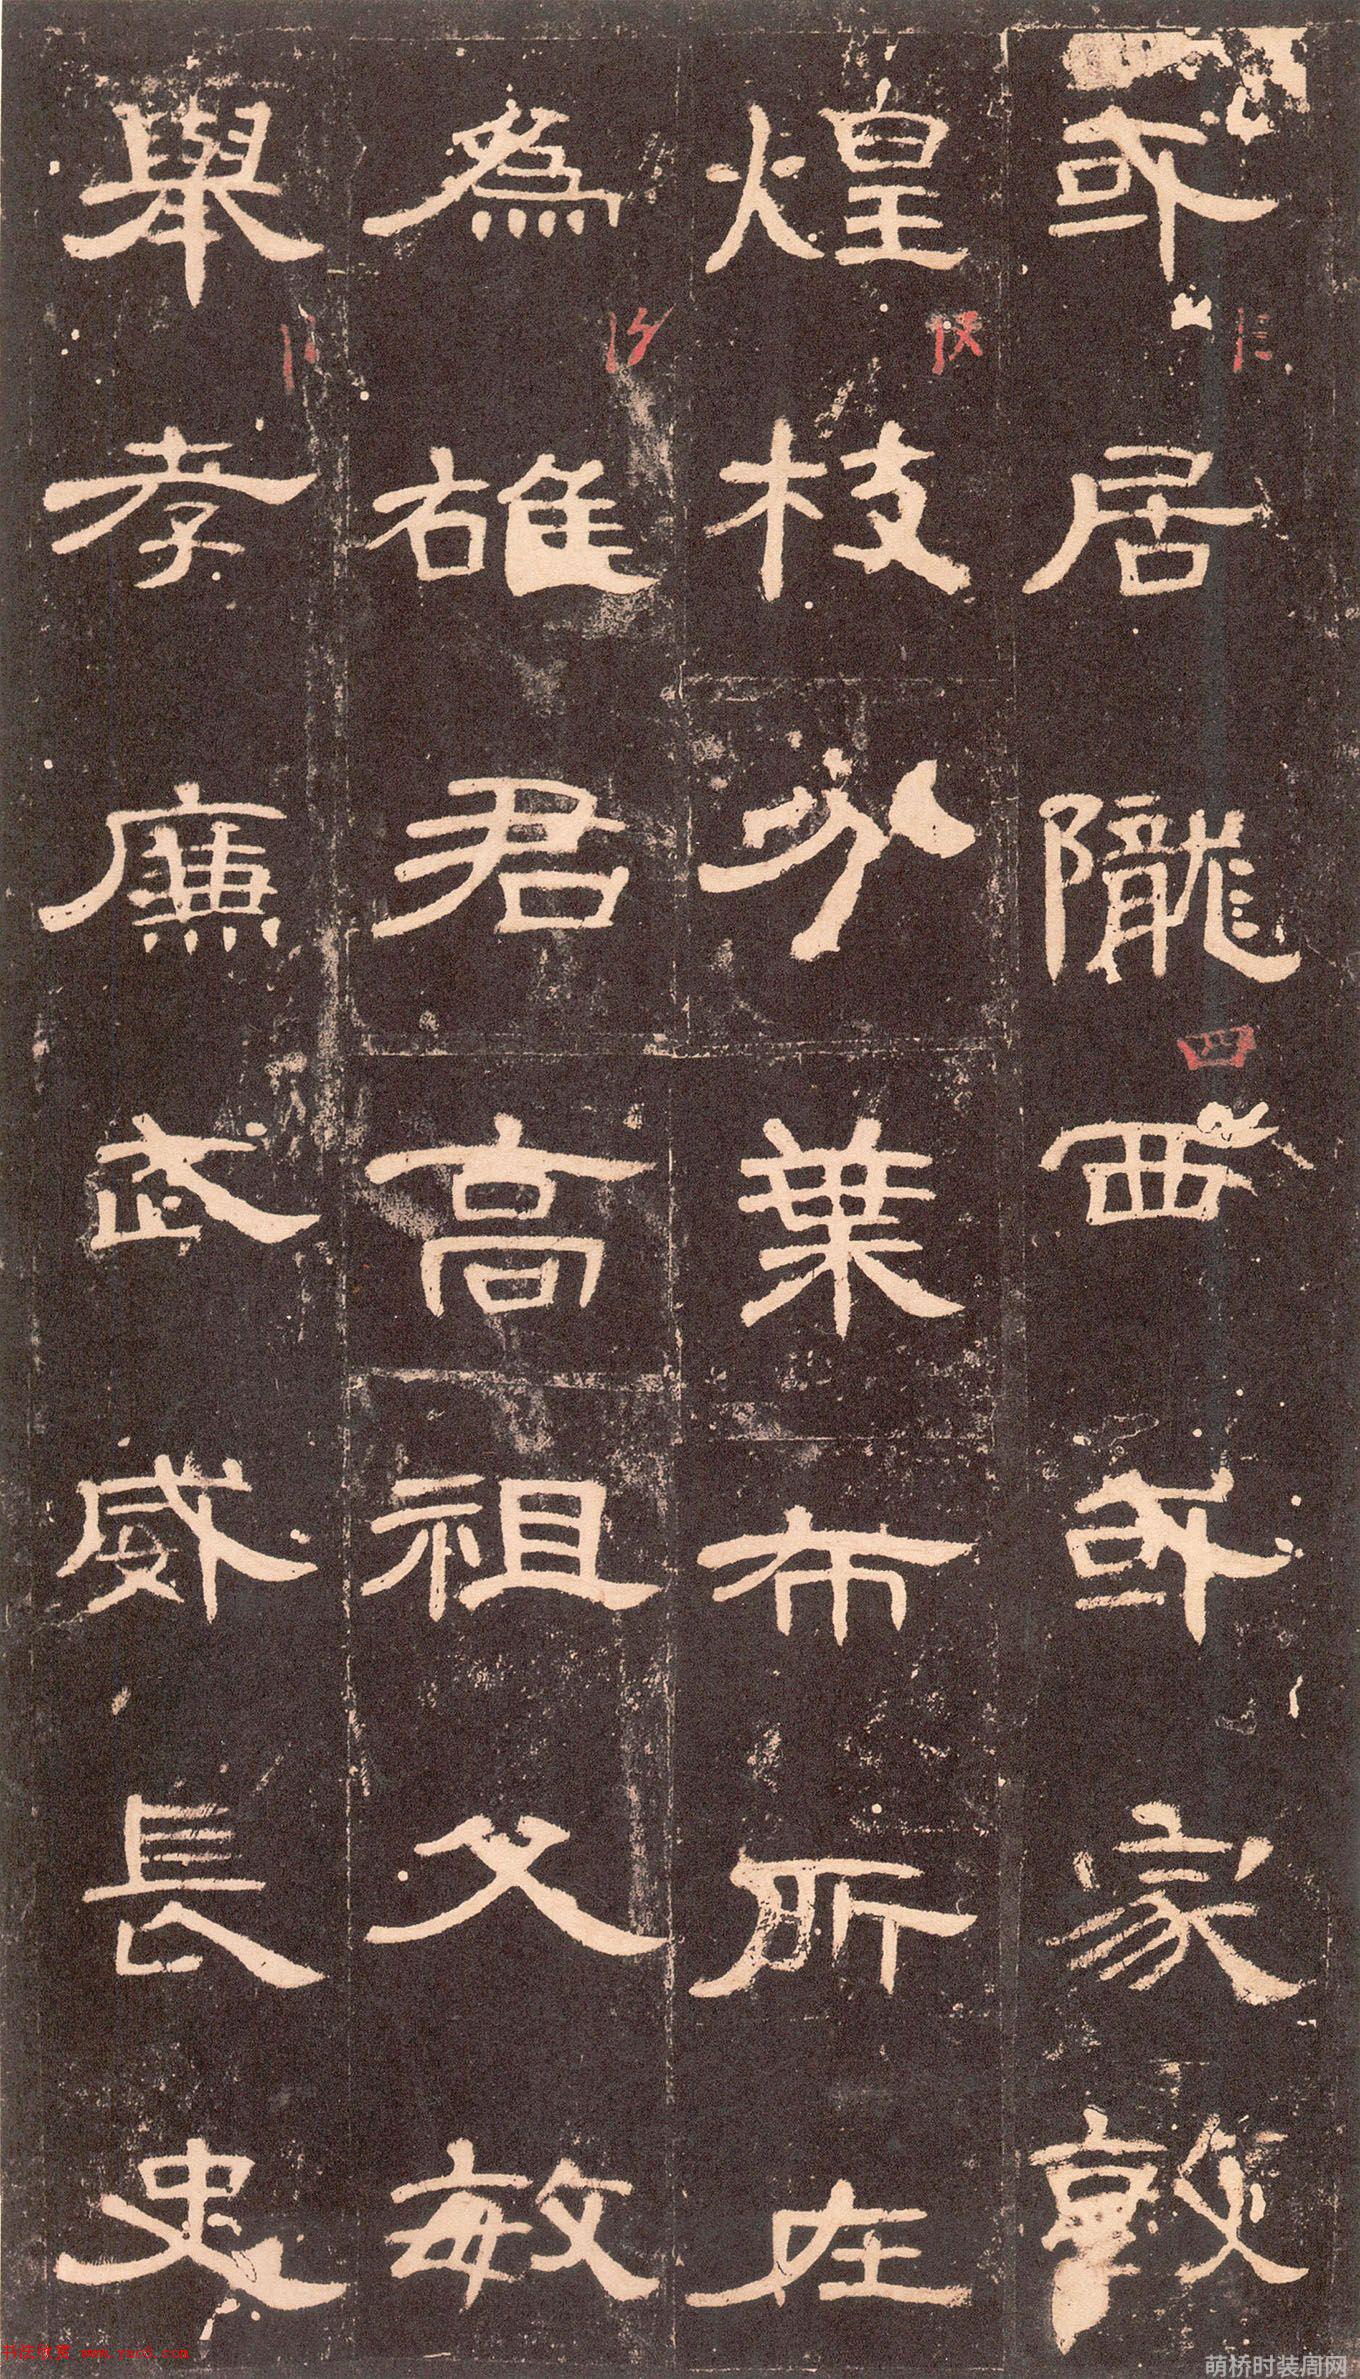 或居隴西或家敦
煌枝分葉布所在
為雄君高祖父敏
舉孝廉武威長史
四
书法欣赏 www.yac8.com
萌桥时装周网